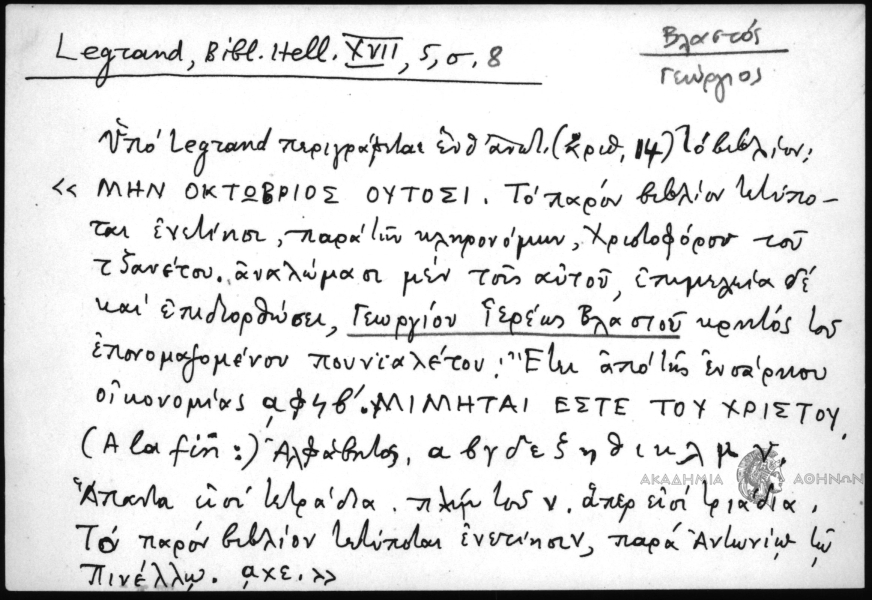 Legrand, Bibl. Hell. XVII, 5, σ. 8
Βλαστός
Γεώργιος
Ὑπό Legrand περιγράφεται ἐνθ' ἀνωτ. (ἀριθ. 14) τό βιβλίον:
<< ΜΗΝ ΟΚΤΩΒΡΙΟΣ ΟΥΤΟΣΙ. Τό παρόν βιβλίον τετύπο-
ται ἐνετίησι, παρά τῶν κληρονόμων, Χριστοφόρου τοῦ
τζανέτου. ἀναλώμασι μέν τοῖς αὐτοῦ, ἐπιμελεία δέ
καί ἐπιδιορθώσει, Γεωργίου Ἱερέως Βλαστοῦ κρητός τοῦ
ἐπονομαζομένου πουνϊαλέτου: Ἔτει ἀπό τῆς ἐνσάρκου
οἰκονομίας αφϟβ'. ΜΙΜΗΤΑΙ ΕΣΤΕ ΤΟΥ ΧΡΙΣΤΟΥ.
(A la fin :) Ἀλφάβητος, α β γ δ ε ξ η θ ι κ λ μ ν.
ΑΚΑΔΗΜΙΑ ΑΘΗΝΩΝ
Ἅπαντα εἰσί τετράδια. πλήν τοῦ ν. ἅπερ εἰσί τριάδια.
Τό παρόν βιβλίον τετύπεται ἐνετίησιν, παρά Ἀντωνίῳ τῷ
Πινέλλῳ. αχε. >>